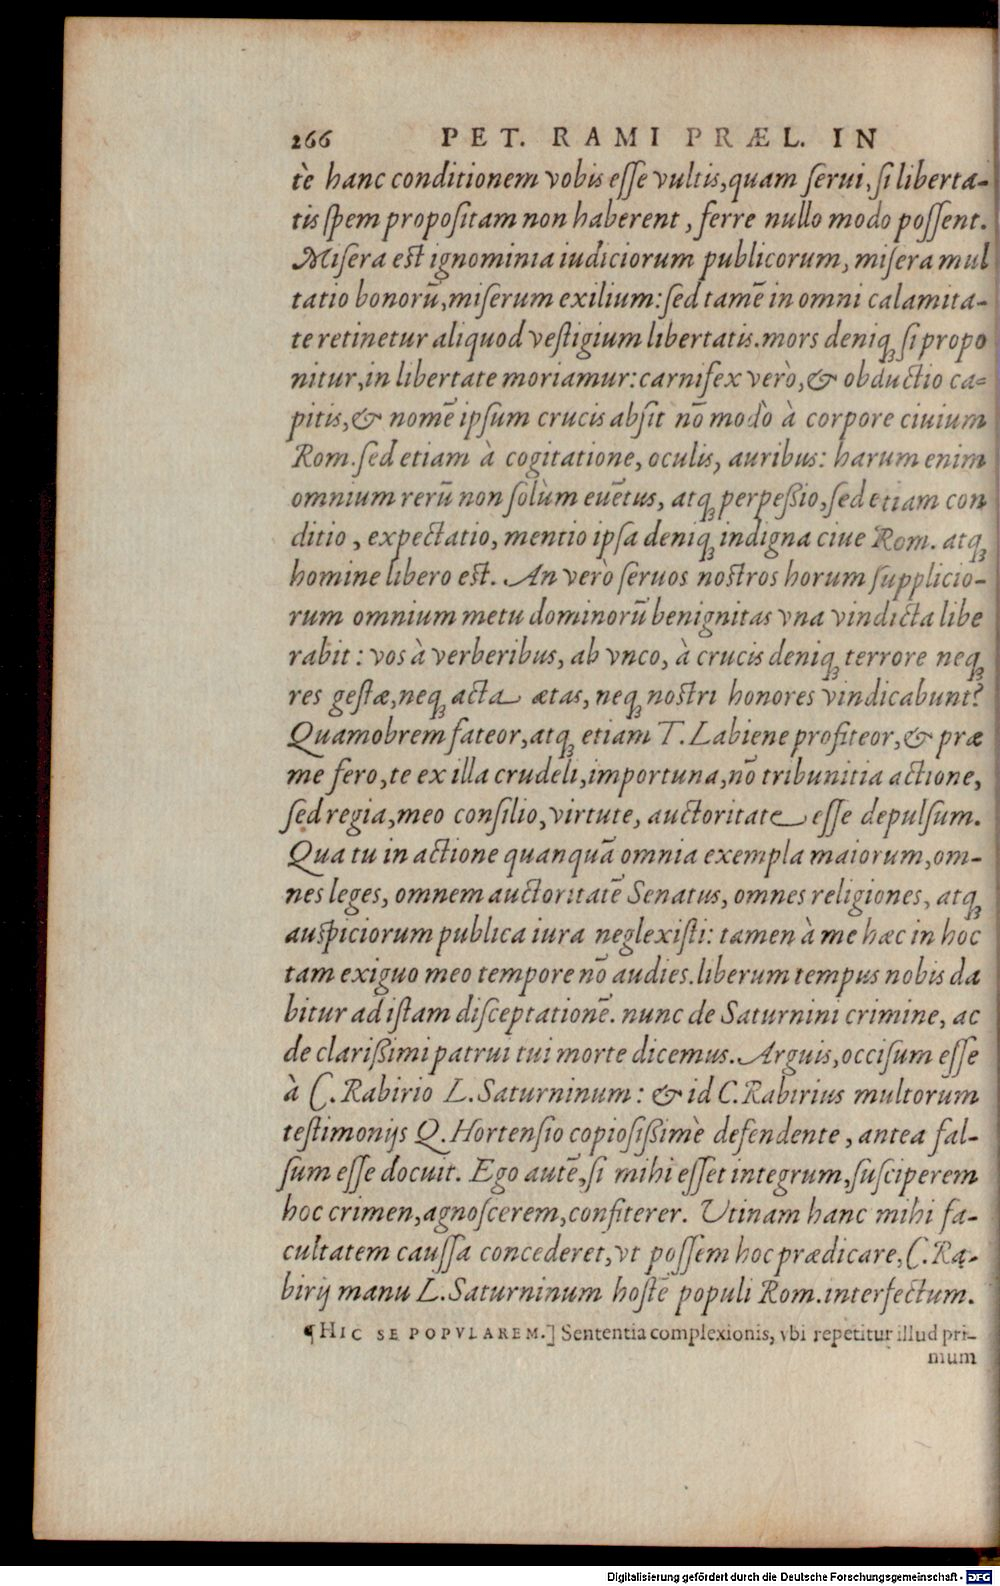 266 PET. RAMI PRÆL. IN
tè hanc conditionem vobis esse vultis, quam serui, si liberta-
tis spem propositam non haberent, ferre nullo modo possent.
Misera est ignominia iudiciorum publicorum, misera mul
tatio bonorū, miserum exilium: sed tamē in omni calamita-
te retinetur aliquod vestigium libertatis. mors deniq; si propo
nitur, in libertate moriamur: carnifex verò, & obductio ca-
pitis, & nomē ipsum crucis absit nō modò à corpore ciuium
Rom. sed etiam à cogitatione, oculis, auribus: harum enim
omnium rerū non solùm euētus, atq; perpeßio, sed etiam con
ditio, expectatio, mentio ipsa deniq; indigna ciue Rom. atq;
homine libero est. An verò seruos nostros horum supplicio-
rum omnium metu dominorū benignitas vna vindicta libe
rabit: vos à verberibus, ab vnco, à crucis deniq; terrore neq;
res gestæ, neq; acta ætas, neq; nostri honores vindicabunt?
Quamobrem fateor, atq; etiam T. Labiene profiteor, & præ
me fero, te ex illa crudeli, importuna, nō tribunitia actione,
sed regia, meo consilio, virtute, auctoritate esse depulsum.
Qua tu in actione quanquā omnia exempla maiorum, om-
nes leges, omnem auctoritatē Senatus, omnes religiones, atq;
auspiciorum publica iura neglexisti: tamen à me hæc in hoc
tam exiguo meo tempore nō audies. liberum tempus nobis da
bitur ad istam disceptationē. nunc de Saturnini crimine, ac
de clarißimi patrui tui morte dicemus. Arguis, occisum esse
à C. Rabirio L. Saturninum: & id C. Rabirius multorum
testimonijs Q. Hortensio copiosißimè defendente, antea fal-
sum esse docuit. Ego autē, si mihi esset integrum, susciperem
hoc crimen, agnoscerem, confiterer. Utinam hanc mihi fa-
cultatem caussa concederet, vt possem hoc prædicare, C. Ra-
birij manu L. Saturninum hostē populi Rom. interfectum.
¶ HIC SE POPVLAREM.] Sententia complexionis, vbi repetitur illud pri-
mum
Digitalisierung gefördert durch die Deutsche Forschungsgemeinschaft - DFG